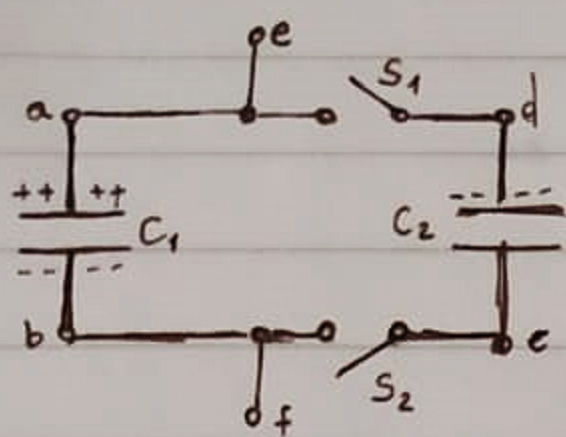 e
a S₁ d
++ ++ - - - -
C₁ C₂
- - - -
b c
S₂
f